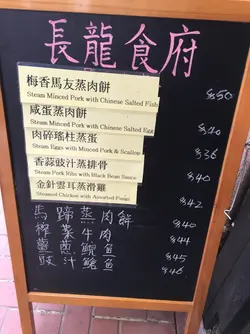 長龍食府
梅香馬友蒸肉餅
Steam Minced Pork with Chinese Salted Fish
$50
咸蛋蒸肉餅
Steam Minced Pork with Chinese Salted Egg
$40
肉碎瑤柱蒸蛋
Steam Eggs with Minced Pork & Scallop
$36
香蒜豉汁蒸排骨
Steam Pork Ribs with Black Bean Sauce
$40
金針雲耳蒸滑雞
Steamed Chicken with Assorted Fungi
$42
馬蹄蒸肉餅 $40
榨菜牛肉 $44
薑蔥汁鯇魚 $45
豉汁鯧魚 $46